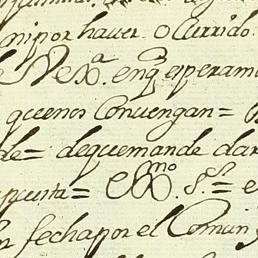 ni por haver ocurrido.
Nexa. enq esperam
quenos Conuengan=
de= dequemande dar
puesta= Exmo. S.r= e
fecha por el Comun